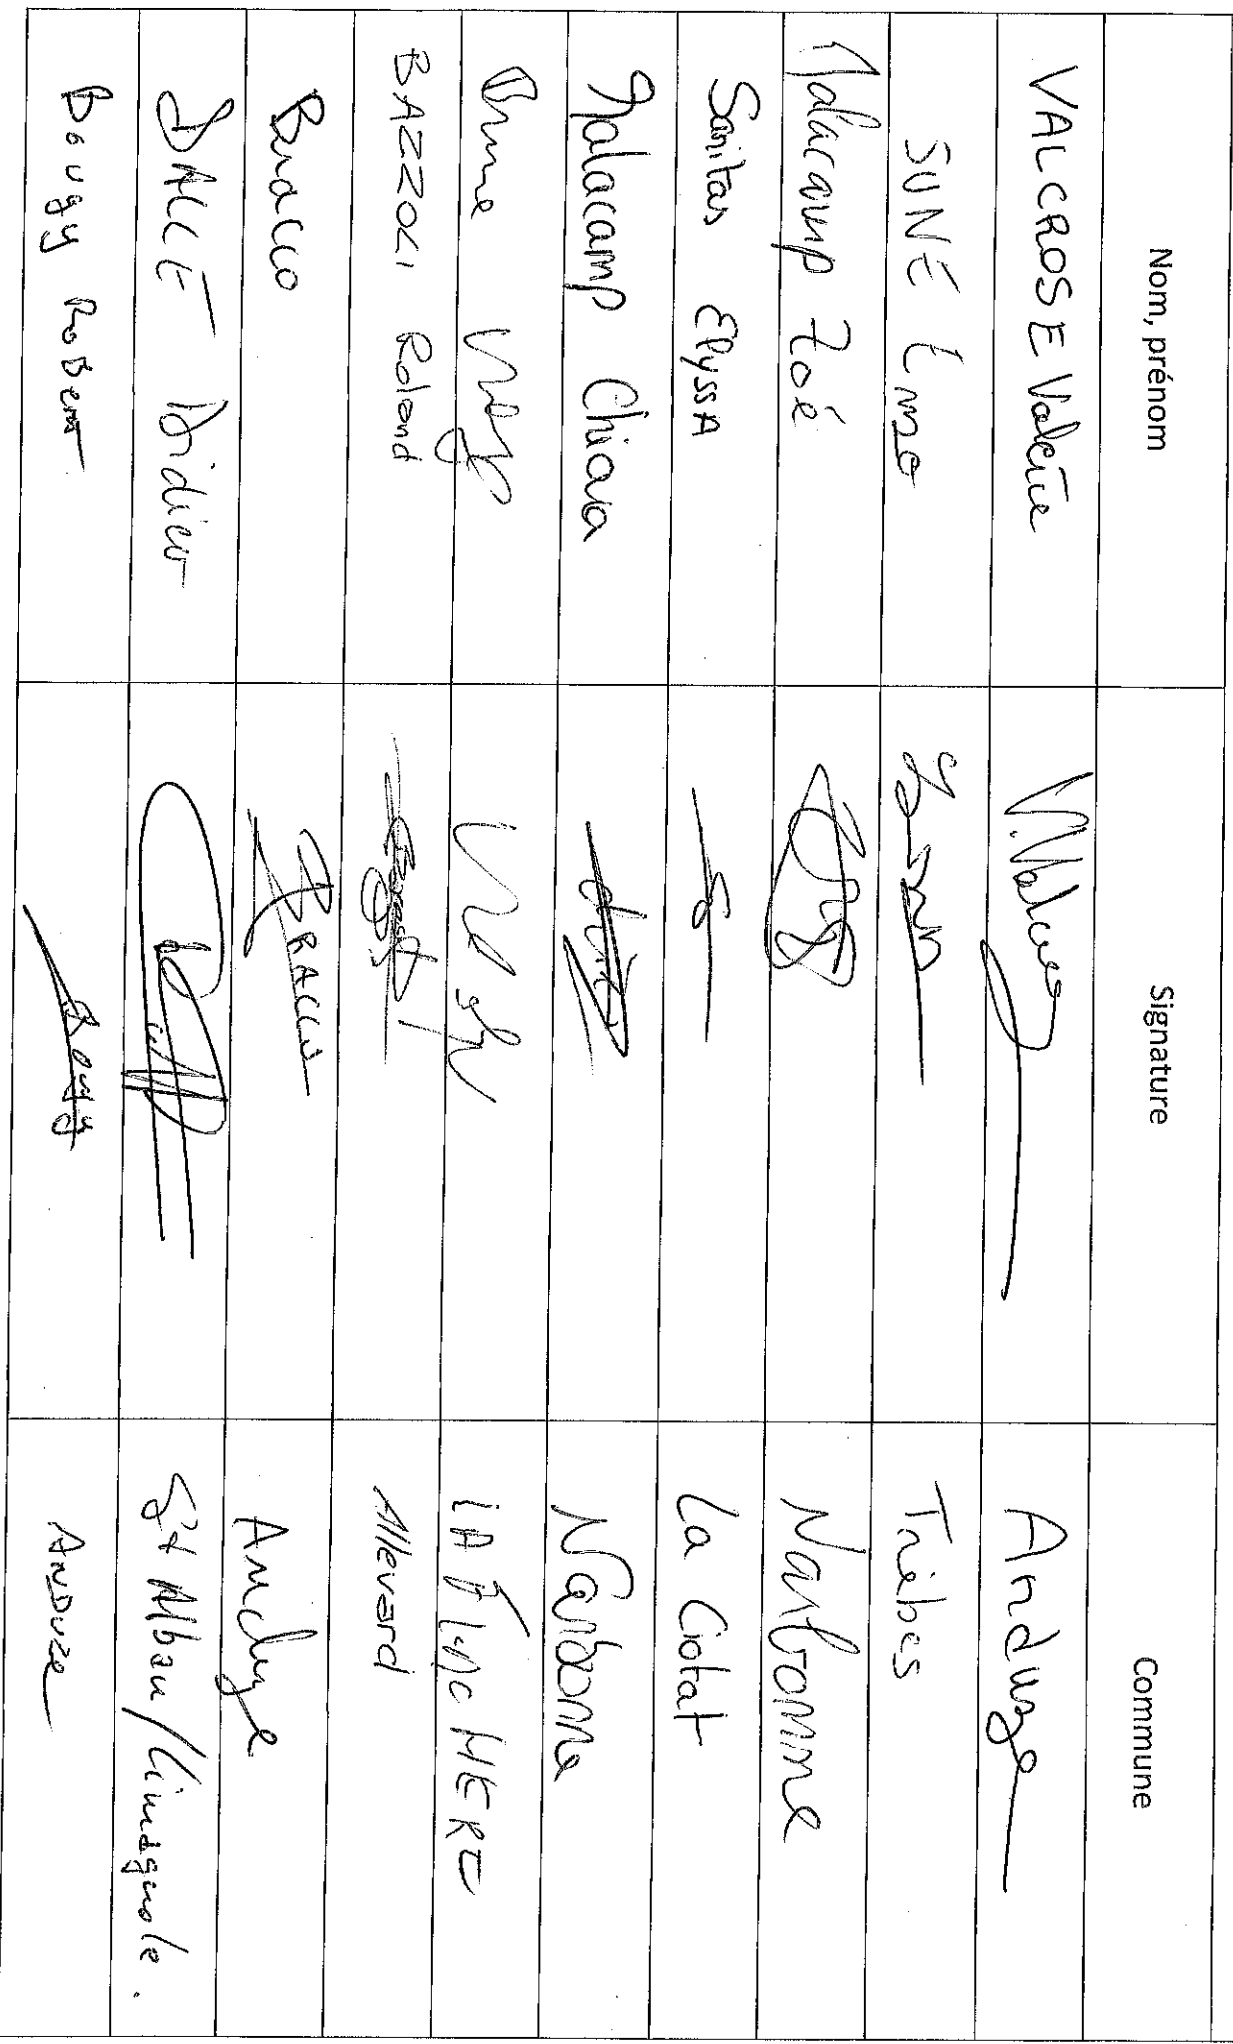 Nom, prénom Signature Commune
VALCROSE Valérie V.Valcros Anduze
SUNÉ Ema Trèbes
Malacamp Zoé Narbonne
Sanitas ElyssA La Ciotat
Malacamp Chiara Narbonne
Allevard
BAZZOCI Roland
Bracco BRACCO Anduze
DALLE Didier St Alban/Limagnole.
Bougy RoBert Bougy ANDUZE